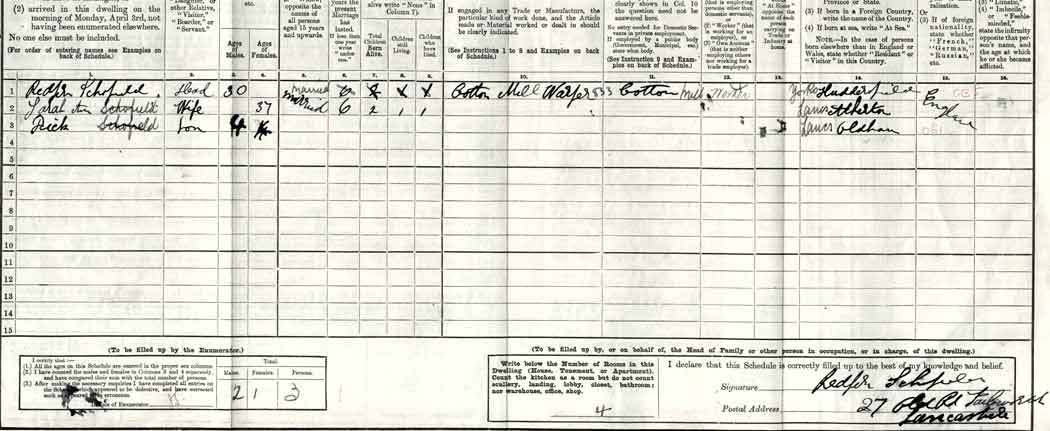 (2) arrived in this dwelling on the
morning of Monday, April 3rd, not
having been enumerated elsewhere.
No one else must be included.
(For order of entering names see Examples on
back of Schedule.)
Daughter, or
other Relative,
"Visitor,"
"Boarder," or
"Servant."
etc.
Ages
of
Males.
Ages
of
Females.
opposite the
names of
all persons
aged 15 years
and upwards.
years the
present
Marriage
has
lasted.
If less than
one year
write
"under
one."
alive write "None" in
Column 7).
Total
Children
Born
Alive.
Children
still
Living.
Children
who
have
Died.
If engaged in any Trade or Manufacture, the
particular kind of work done, and the Article
made or Material worked or dealt in should
be clearly indicated.
(See Instructions 1 to 8 and Examples on back
of Schedule.)
clearly shown in Col. 10
the question need not be
answered here.
No entry needed for Domestic Ser-
vants in private employment.
If employed by a public body
(Government, Municipal, etc.)
(See Instruction 9 and Exam-
ples on back of Schedule.)
persons other than
domestic servants),
or
(2) "Worker" (that
is working for an
employer), or
(3) "Own Account"
(that is neither
employing others
nor working for a
trade employer).
"At Home"
opposite the
name of each
person
carrying on
Trade or
Industry at
home.
Province or State.
(3) If born in a Foreign Country,
write the name of the Country.
(4) If born at sea, write "At Sea."
NOTE.—In the case of persons
born elsewhere than in England or
Wales, state whether "Resident" or
"Visitor" in this Country.
Or
(3) If of foreign
nationality,
state whether
"French,"
"German,"
"Russian,"
etc.
(1) "Imbecile,"
or "Feeble-
minded,"
state the infirmity
opposite that per-
son's name, and
the age at which
he or she became
afflicted.
1. 2. 3. 4. 5. 6. 7. 8. 9. 10. 11. 12. 13. 14. 15. 16.
1 Schofield Head 30 Married Cotton Mill Warper 533 Cotton Mill Worker Yorks Huddersfield
2 Sarah Ann Schofield Wife 37 married 6 2 1 1 Lancs Atherton
3 Schofield Son 4 Lancs Oldham
4
5
6
7
8
9
10
11
12
13
14
15
(To be filled up by the Enumerator.)
I certify that:—
(1.) All the ages on this Schedule are entered in the proper sex columns.
(2.) I have counted the males and females in Columns 3 and 4 separately,
and have compared their sum with the total number of persons.
(3.) After making the necessary enquiries I have completed all entries on
the Schedule which appeared to be defective, and have corrected
such as appeared to be erroneous.
of Enumerator
Total.
Males. Females. Persons.
2 1 3
(To be filled up by, or on behalf of, the Head of Family or other person in occupation, or in charge, of this dwelling.)
Write below the Number of Rooms in this
Dwelling (House, Tenement, or Apartment).
Count the kitchen as a room but do not count
scullery, landing, lobby, closet, bathroom;
nor warehouse, office, shop.
4
I declare that this Schedule is correctly filled up to the best of my knowledge and belief.
Signature
Postal Address 27
Lancashire